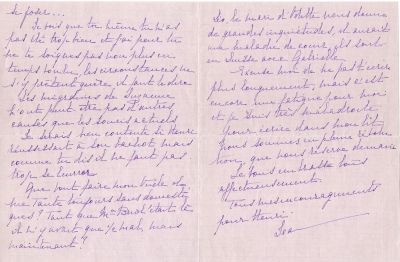 se poser...
Je vois que toi même tu n'as
pas été trop bien et j'ai peur tu
ne te soignes pas non plus en
temps voulu, les circonstances ne
s'y prêtent guère et
Les migraines de Suzanne
n'ont peut être pas d'autres
causes que les soucis actuels
Je serais bien contente si Henri
réussissait à son bachot mais
comme tu dis il ne faut pas
trop se leurrer
Que vont faire mon oncle et
ma tante toujours sans domesti
ques? Tant que Me était là
il n'y avait que 1/2 mal, mais
maintenant?
Léo, le mari d'Odette nous donne
de grandes inquiétudes, il aurait
une maladie de coeur, il sort
en Suisse avec Gabrielle
Excuse moi de ne pas t'écrire
plus longuement, mais c'est
encore une fatigue pour moi
et je suis très maladroite
pour écrire dans mon lit
Nous sommes en pleine révolu
tion, que nous réserve demain
Je vous embrasse tous
affectueusement.
Tous mes encouragements
pour Henri